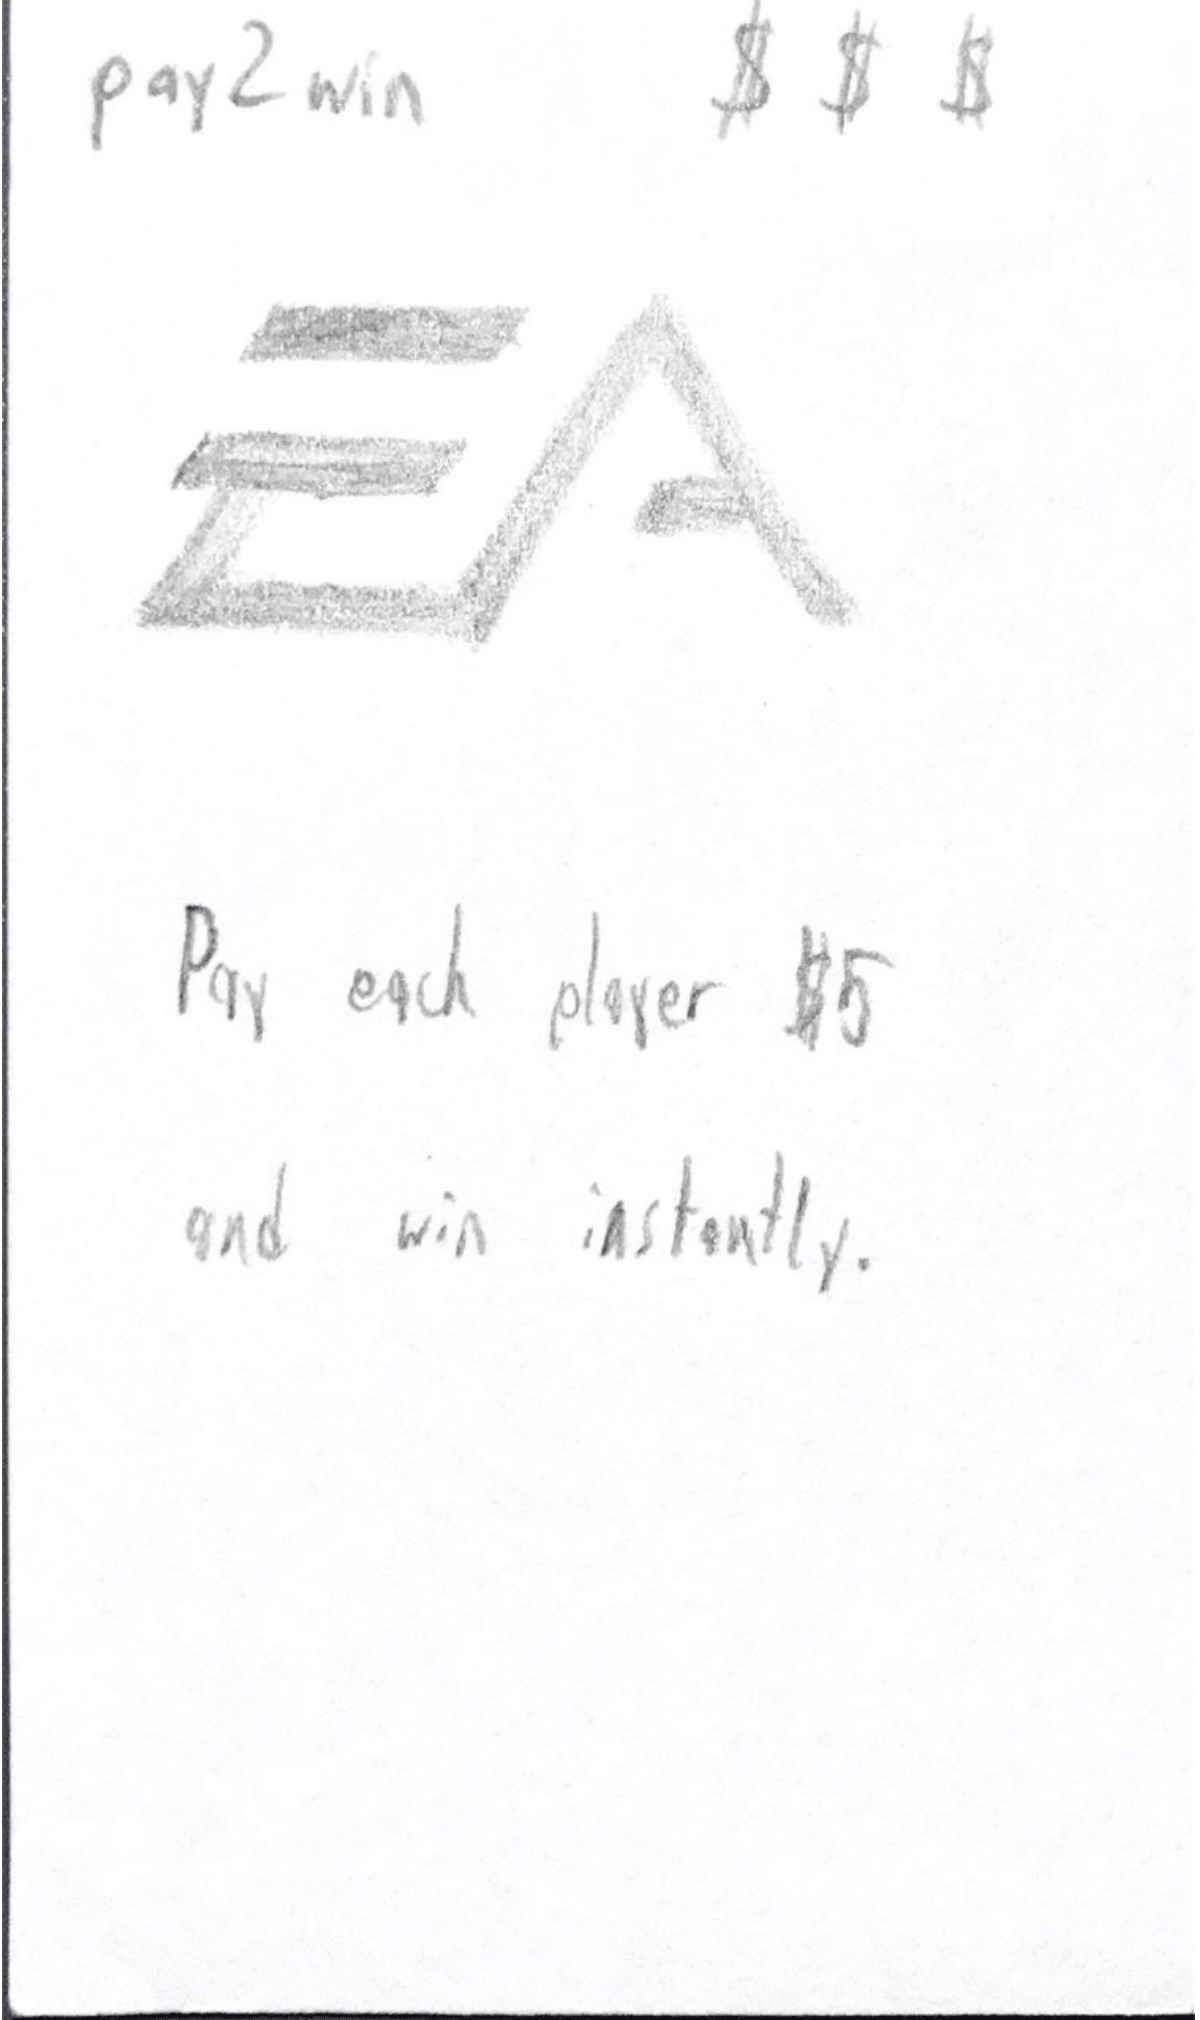 pay2win $ $ $
EA
Pay each player $5
and win instantly.